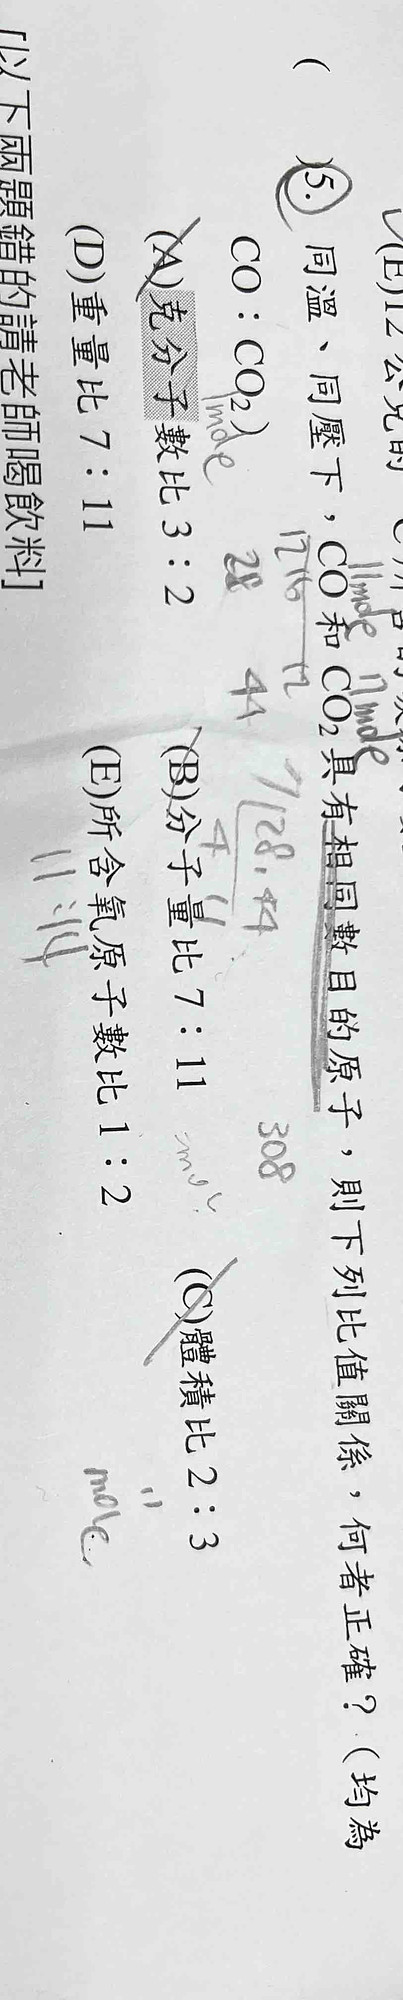 (E)12 公克的
( )5. 同溫、同壓下，CO 和 CO₂ 具有相同數目的原子，則下列比值關係，何者正確？（均為
CO：CO₂）
(A)克分子數比 3：2 (B)分子量比 7：11 (C)體積比 2：3
(D)重量比 7：11 (E)所含氧原子數比 1：2
[以下兩題錯的請老師喝飲料]
11mole
17mole
1mole
12 16
12
28
44
7 28.44
4 11
308
mole